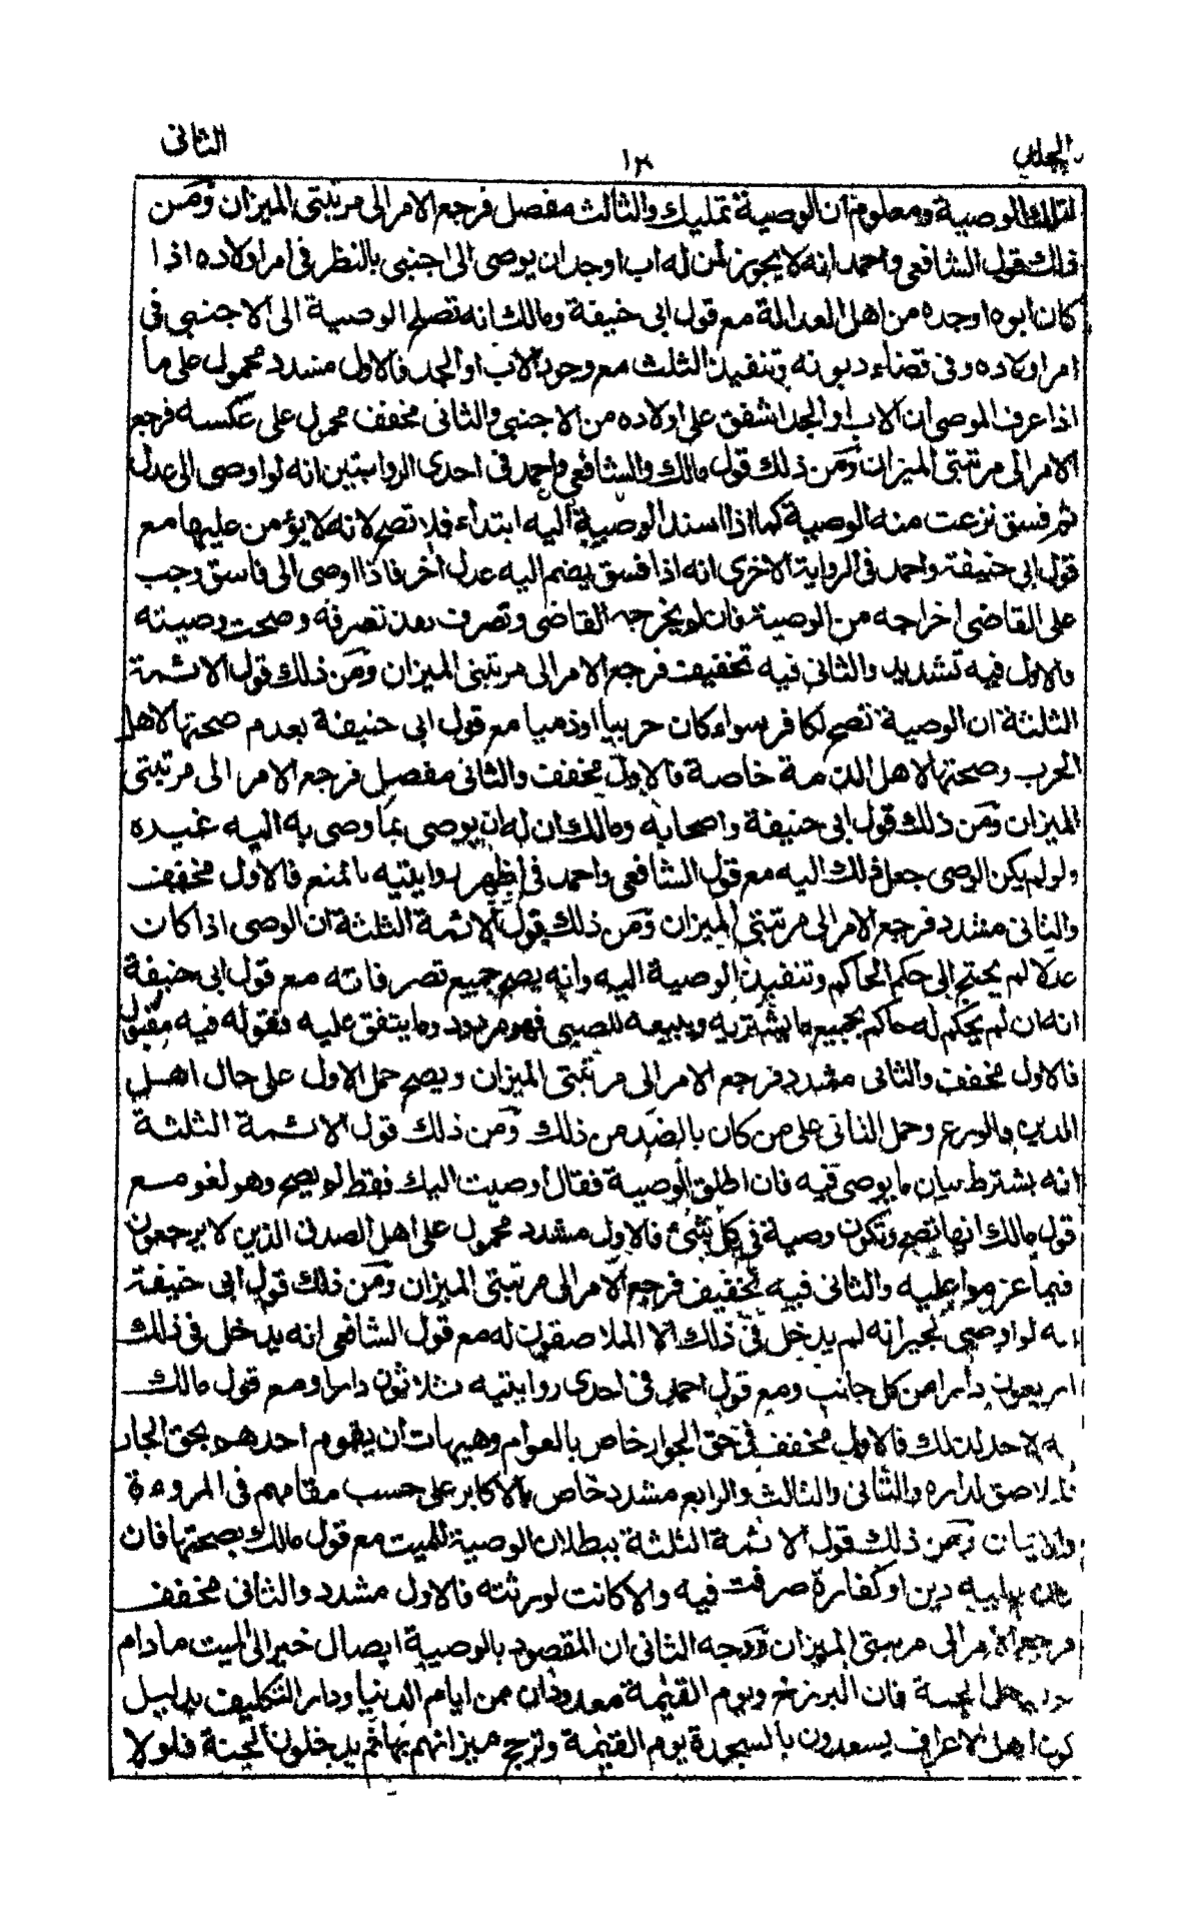 الجلد ١٢ الثانى
لتلك الوصية ومعلوم ان الوصية تمليك والثالث مفصل فرجع الامر الى مرتبتى الميزان ومن
ذلك قول الشافعى واحمد انه لا يجوز لمن له اب اوجد ان يوصى الى اجنبى بالنظر فى امر اولاده اذا
كان ابوه اوجده من اهل العدالة مع قول ابى حنيفة ومالك انه تصح الوصية الى الاجنبى فى
امر اولاده وفى قضاء ديونه وتنفيذ الثلث مع وجود الاب او الجد فالاول مشدد محمول على ما
اذا عرف الموصى ان الاب او الجد اشفق على اولاده من الاجنبى والثانى مخفف محمول على عكسه فرجع
الامر الى مرتبتى الميزان ومن ذلك قول مالك والشافعى واحمد فى احدى الروايتين انه لو اوصى الى عدل
ثم فسق نزعت منه الوصية كما اذا اسند الوصية اليه ابتداء فلا تصح لانه لا يؤمن عليها مع
قول ابى حنيفة واحمد فى الرواية الاخرى انه اذا فسق يضم اليه عدل آخر فاذا اوصى الى فاسق وجب
على القاضى اخراجه من الوصية فان لم يخرجه القاضى وتصرف نفذ تصرفه وصحت وصيته
فالاول فيه تشديد والثانى فيه تخفيف فرجع الامر الى مرتبتى الميزان ومن ذلك قول الائمة
الثلثة ان الوصية تصح لكافر سواء كان حربيا او ذميا مع قول ابى حنيفة بعدم صحتها لاهل
الحرب وصحتها لاهل الذمة خاصة فالاول مخفف والثانى مفصل فرجع الامر الى مرتبتى
الميزان ومن ذلك قول ابى حنيفة واصحابه ومالك ان له ان يوصى بما وصى به اليه غيره
ولو لم يكن الوصى جعل ذلك اليه مع قول الشافعى واحمد فى اظهر روايتيه بالمنع فالاول مخفف
والثانى مشدد فرجع الامر الى مرتبتى الميزان ومن ذلك قول الائمة الثلثة ان الوصى اذا كان
عدلا لم يحتج الى حكم الحاكم وتنفيذ الوصية اليه وانه يصح جميع تصرفاته مع قول ابى حنيفة
انه ان لم يحكم له حاكم بجميع ما يشتريه ويبيعه للصبى فهو مردود وما يتفق عليه فقوله فيه مقبول
فالاول مخفف والثانى مشدد فرجع الامر الى مرتبتى الميزان ويصح حمل الاول على حال اهل
الدين والورع وحمل الثانى على من كان بالضد من ذلك ومن ذلك قول الائمة الثلثة
انه يشترط بيان ما يوصى فيه فان اطلق الوصية فقال اوصيت اليك فقط لم يصح وهو لغو مع
قول مالك انها تصح وتكون وصية فى كل شئ فالاول مشدد محمول على اهل الصدق الذين لا يرجعون
فيما عزموا عليه والثانى فيه تخفيف فرجع الامر الى مرتبتى الميزان ومن ذلك قول ابى حنيفة
انه لو اوصى لجيرانه لم يدخل فى ذلك الا الملاصقون له مع قول الشافعى انه يدخل فى ذلك
اربعون دارا من كل جانب ومع قول احمد فى احدى روايتيه ثلاثون دارا ومع قول مالك
لا حد لذلك فالاول مخفف فى حق الجوار خاص بالعوام وهيهات ان يقوم احدهم بحق الجار
الملاصق لداره والثانى والثالث والرابع مشدد خاص بالاكابر على حسب مقامهم فى المروءة
ومن ذلك قول الائمة الثلثة ببطلان الوصية للميت مع قول مالك بصحتها فان
كان عليه دين او كفارة صرفت فيه والا كانت لورثته فالاول مشدد والثانى مخفف
فرجع الامر الى مرتبتى الميزان ووجه الثانى ان المقصود بالوصية ايصال خير الى الميت مادام
الجنة فان البرزخ ويوم القيمة معدودان من ايام الدنيا ودار التكليف بدليل
كون اهل الاعراف يسعدون بالسجدة يوم القيمة وترجح ميزانهم بها ثم يدخلون الجنة فلولا